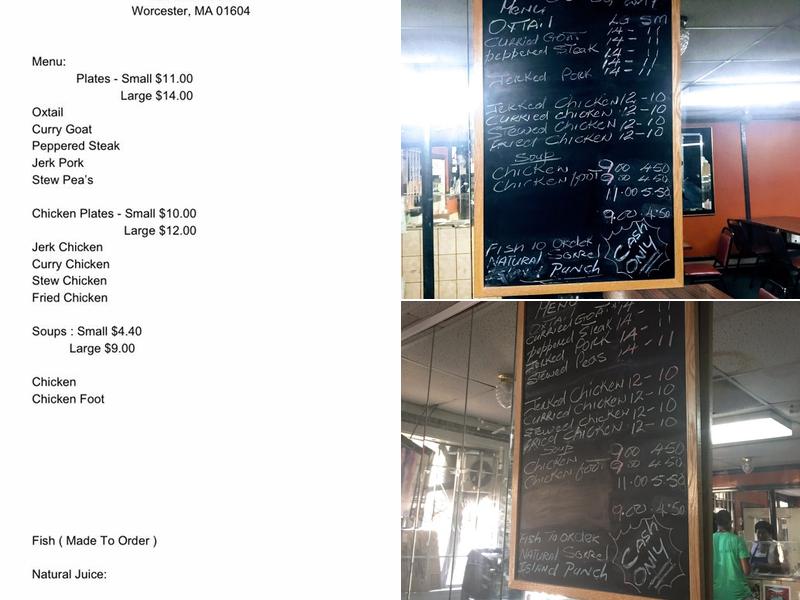 Worcester, MA 01604
Menu:
Plates - Small $11.00
Large $14.00
Oxtail
Curry Goat
Peppered Steak
Jerk Pork
Stew Pea's
Chicken Plates - Small $10.00
Large $12.00
Jerk Chicken
Curry Chicken
Stew Chicken
Fried Chicken
Soups : Small $4.40
Large $9.00
Chicken
Chicken Foot
Fish ( Made To Order )
Natural Juice:
MENU
OXTAIL LG SM
CURRIED GOAT 14 - 11
peppered STEAK 14 - 11
14 - 11
JERKED PORK 14 - 11
JERKED CHICKEN 12 - 10
CURRIED CHICKEN 12 - 10
STEWED CHICKEN 12 - 10
FRIED CHICKEN 12 - 10
SOUP
CHICKEN 9.00 4.50
CHICKEN foot 9.00 4.50
11.00 5.50
9.00 4.50
FISH TO ORDER
NATURAL SORREL
PUNCH
CASH
ONLY
MENU
OXTAIL
CURRIED GOAT 14 - 11
peppered STEAK 14 - 11
JERKED PORK 14 - 11
STEWED PEAS 14 - 11
JERKED CHICKEN 12 - 10
CURRIED CHICKEN 12 - 10
STEWED CHICKEN 12 - 10
FRIED CHICKEN 12 - 10
SOUP
CHICKEN 9.00 4.50
CHICKEN foot 9.00 4.50
11.00 5.50
9.00 4.50
FISH TO ORDER
NATURAL SORREL
ISLAND PUNCH
CASH
ONLY